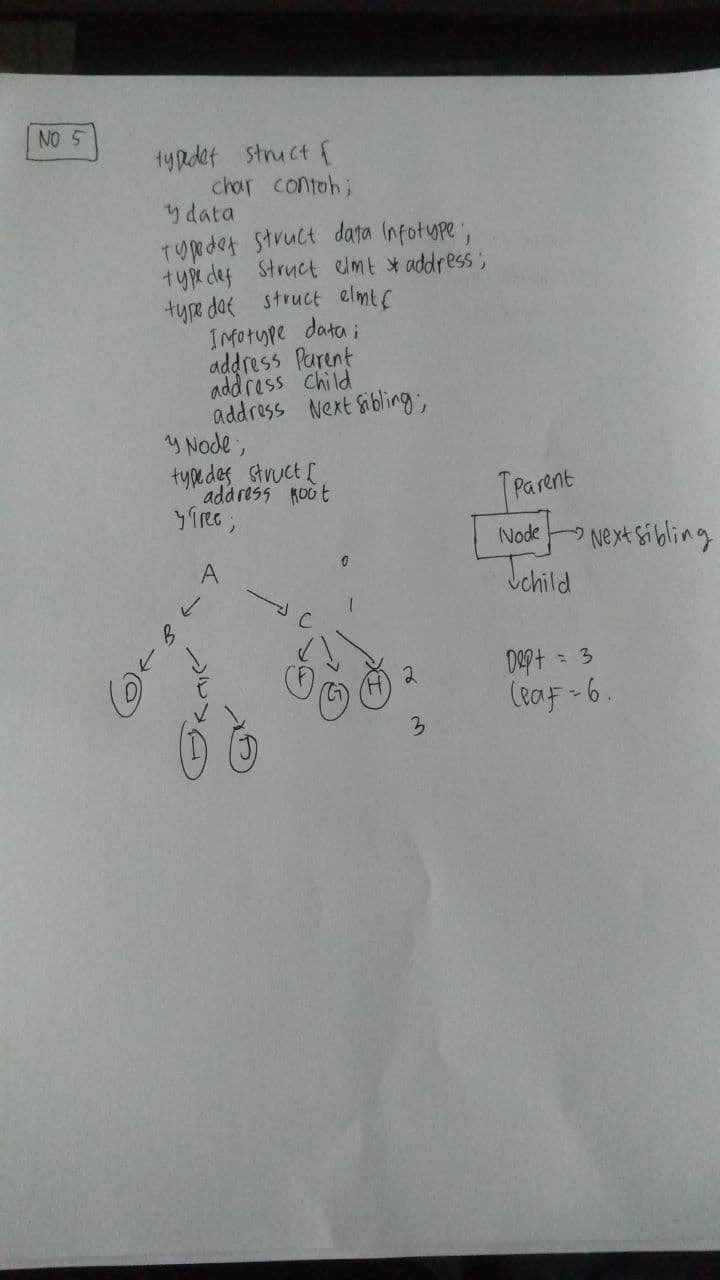 NO 5
typedef struct {
char contoh;
} data
typedef struct data Infotype;
typedef struct elmt * address;
typedef struct elmt {
Infotype data;
address Parent
address Child
address Next Sibling;
} Node;
typedef struct {
address Root
} Tree;
Parent
Node → Next Sibling
child
A 0
B C 1
D E F G H 2
I J 3
Dept = 3
leaf = 6.